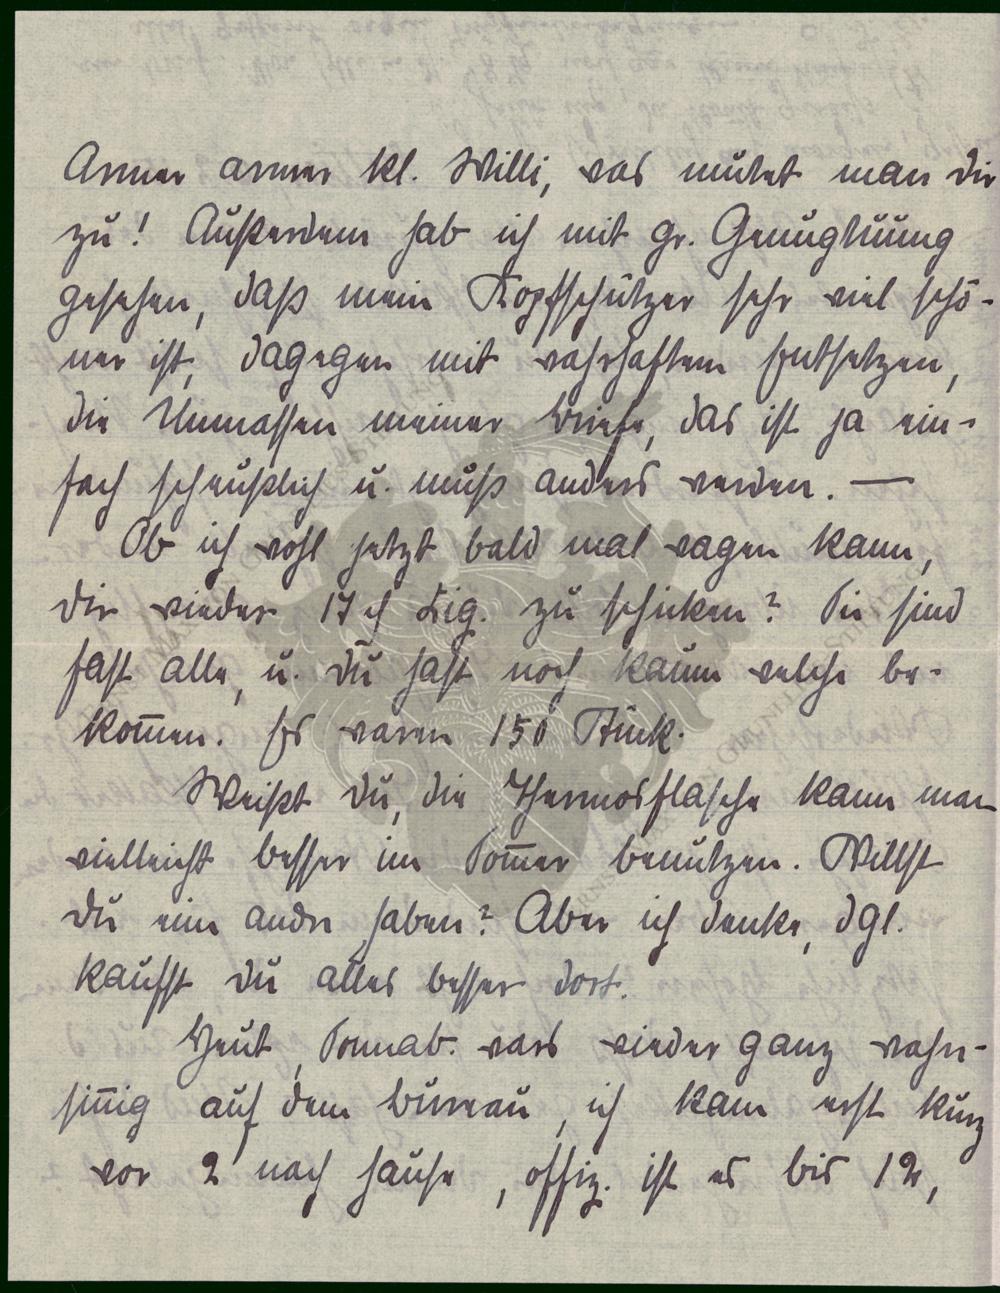 Armer armer kl. Willi, was mutet man dir
zu! Außerdem hab ich mit gr. Genugtuung
gesehen, daß mein Kopfschützer sehr viel schö-
ner ist, dagegen mit wahrhaftem Entsetzen,
die Unmassen meiner Briefe, das ist ja ein-
fach scheußlich u. muß anders werden. —
Ob ich wohl jetzt bald mal wagen kann,
dir wieder Zig. zu schicken? Sie sind
fast alle, u. Du hast noch kaum welche be-
kom̅en. Es waren 150 Stück.
Weißt du, die Thermosflasche kann man
vielleicht besser im Som̅er benutzen. Willst
du eine andre haben? Aber ich denke, dgl.
kaufst du alles besser dort.
Heut, Sonnab. wars wieder ganz wahn-
sin̅ig auf dem büreau, ich kam erst kurz
vor 2 nach hause, offiz. ist es bis 12,